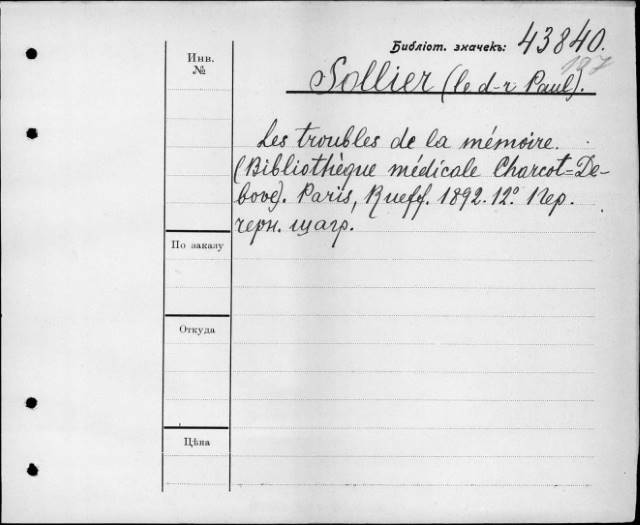 Библіот. значекъ: 43840.
197
Инв.
№
Sollier (le d-r Paul).
Les troubles de la mémoire.
(Bibliothèque médicale Charcot=De-
bove). Paris, Rueff. 1892. 12°. Пер.
черн. шагр.
По заказу
Откуда
Цѣна